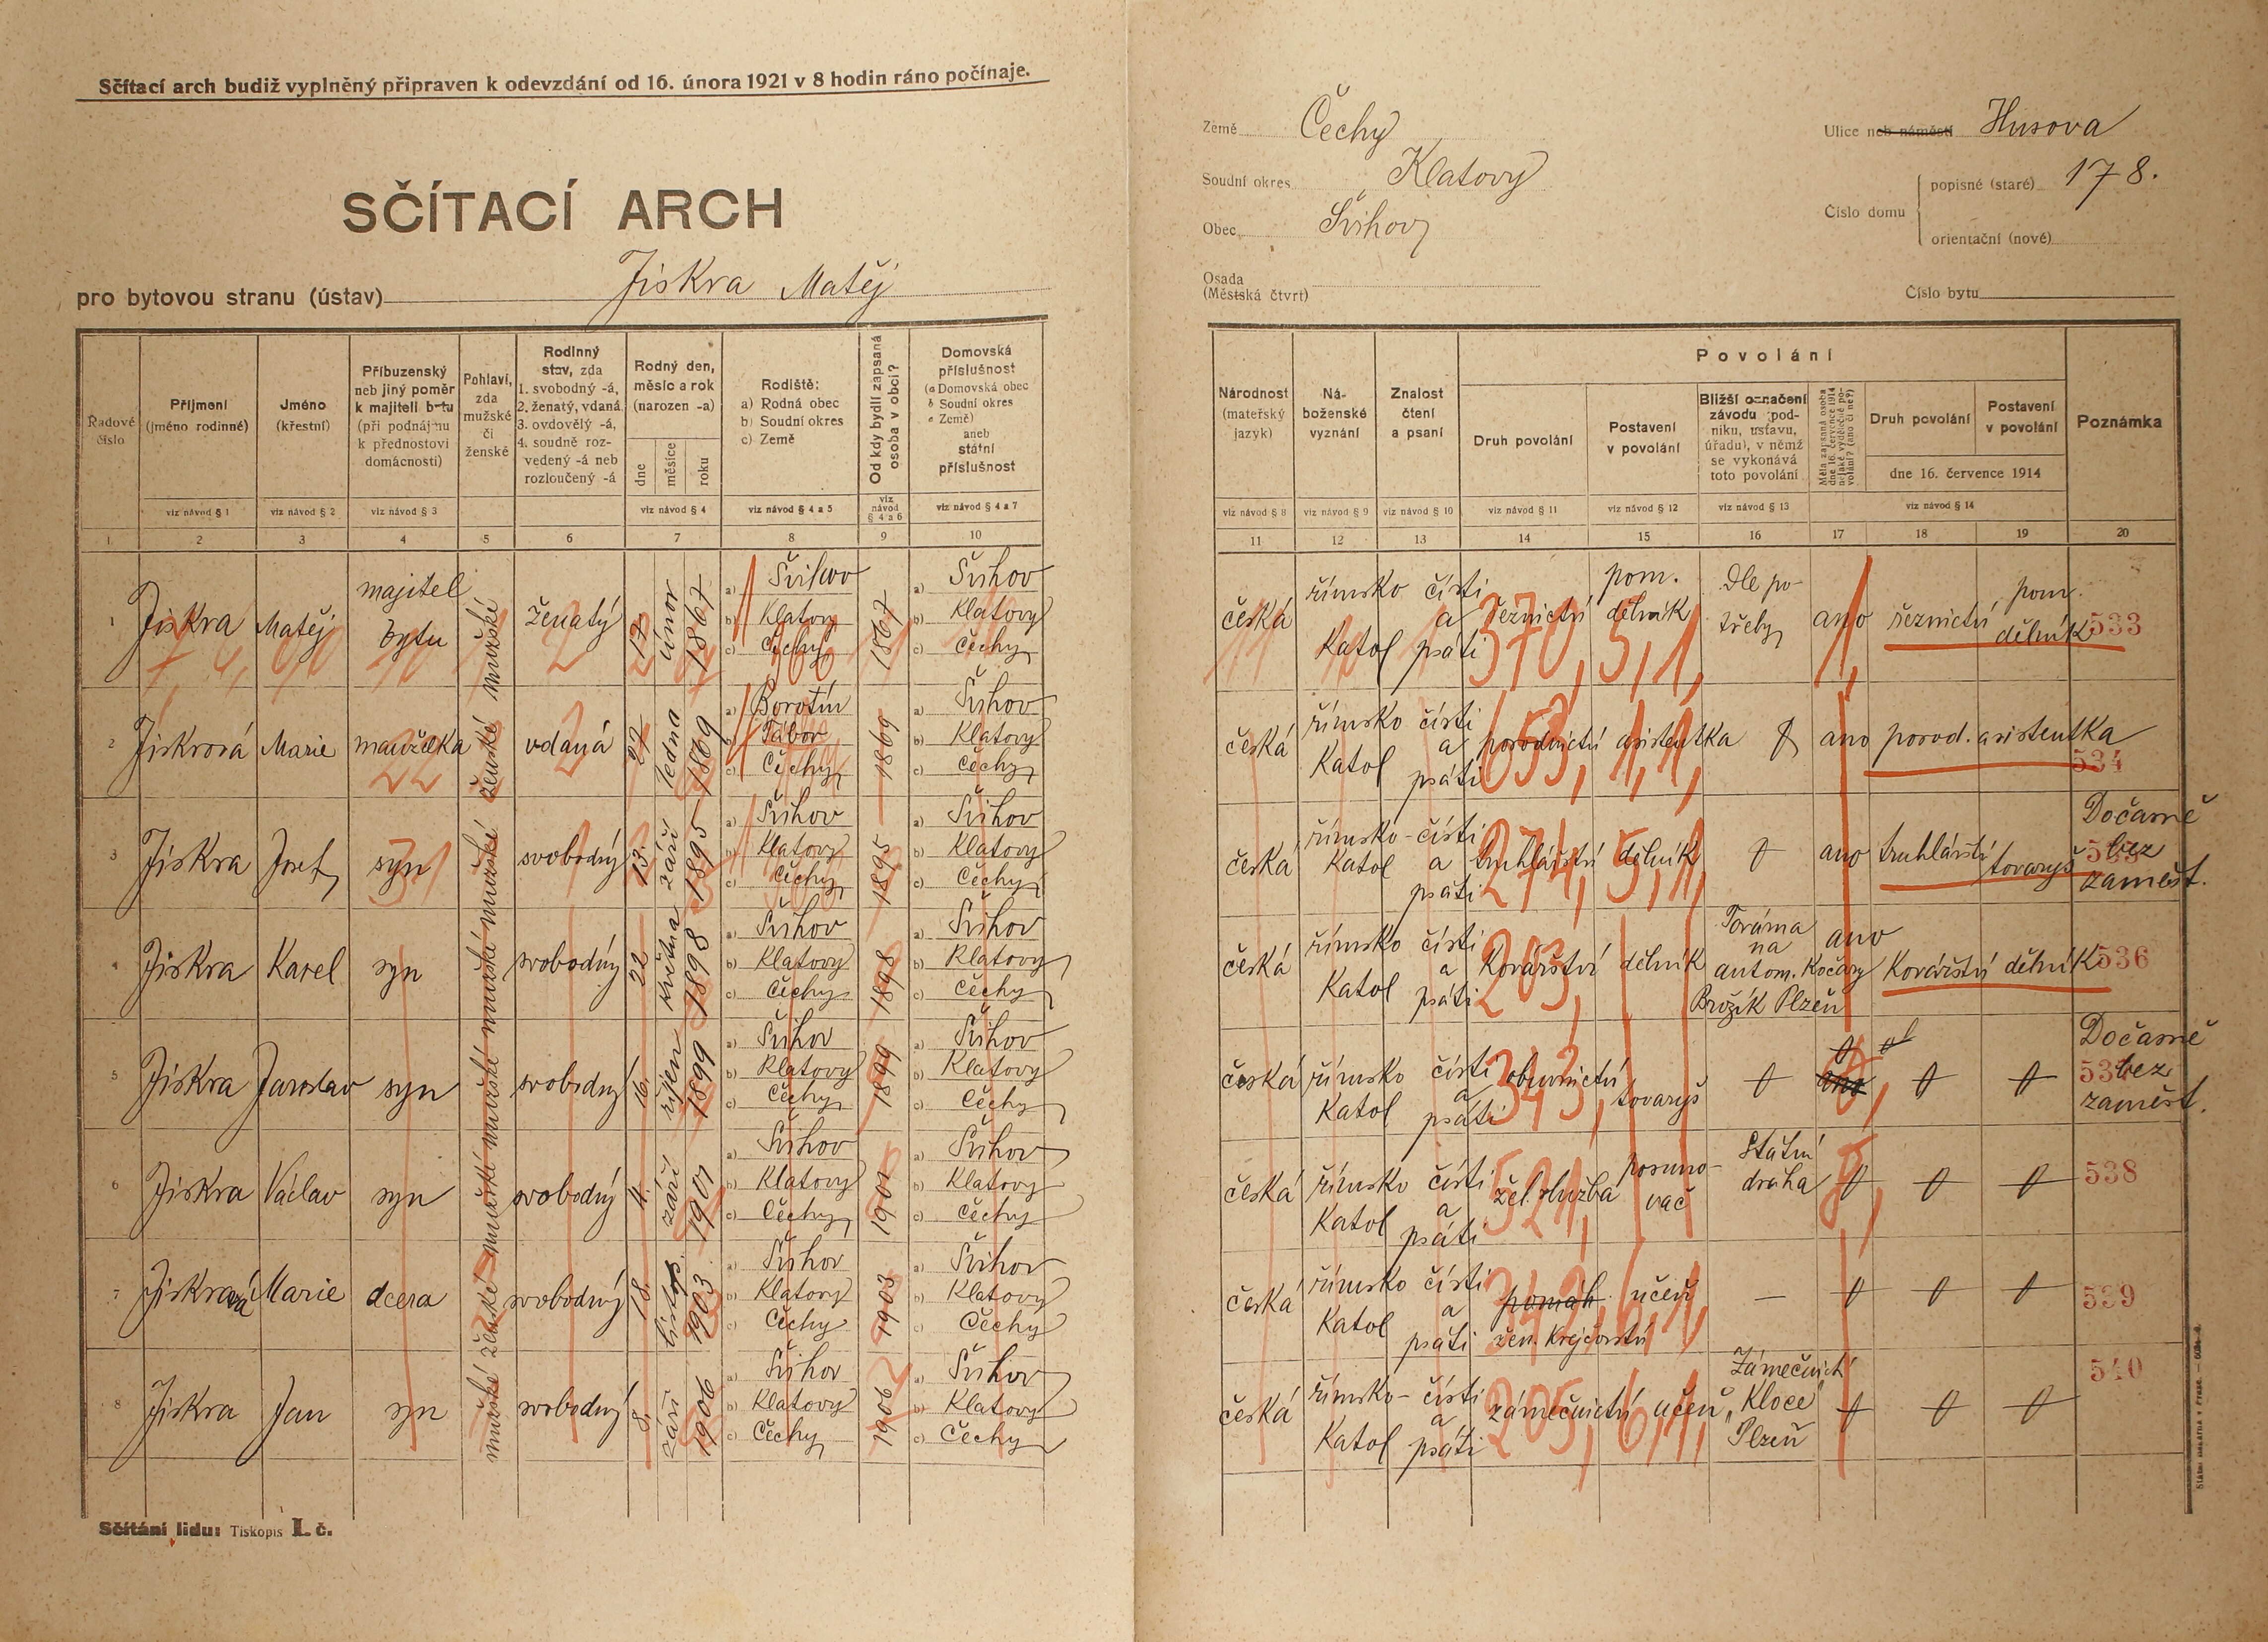 Sčítací arch budiž vyplněný připraven k odevzdání od 16. února 1921 v 8 hodin ráno počínaje.
SČÍTACÍ ARCH
pro bytovou stranu (ústav) Jiskra Matěj
Země Čechy
Soudní okres Klatovy
Obec Švihov
Osada
(Městská čtvrt)
Ulice neb náměstí Husova
Číslo domu
popisné (staré) 178.
orientační (nové)
Číslo bytu
Řadové číslo
Příjmení (jméno rodinné)
Jméno (křestní)
Příbuzenský neb jiný poměr k majiteli bytu (při podnájmu k přednostovi domácnosti)
Pohlaví, zda mužské či ženské
Rodinný stav, zda 1. svobodný -á, 2. ženatý, vdaná 3. ovdovělý -á, 4. soudně rozvedený -á neb rozloučený -á
Rodný den, měsíc a rok (narozen -a)
dne měsíce roku
Rodiště: a) Rodná obec b) Soudní okres c) Země
Od kdy bydlí zapsaná osoba v obci?
Domovská příslušnost (a Domovská obec b Soudní okres c Země) aneb státní příslušnost
viz návod § 1 viz návod § 2 viz návod § 3 viz návod § 4 viz návod § 4 a 5 viz návod § 4 a 6 viz návod § 4 a 7
1 2 3 4 5 6 7 8 9 10
Národnost (mateřský jazyk)
Náboženské vyznání
Znalost čtení a psaní
Povolání
Druh povolání
Postavení v povolání
Bližší označení závodu (podniku, ústavu, úřadu), v němž se vykonává toto povolání
Měla zapsaná osoba dne 16. července 1914 nějaké výdělečné povolání? (ano či ne?)
Druh povolání
Postavení v povolání
dne 16. července 1914
Poznámka
viz návod § 8 viz návod § 9 viz návod § 10 viz návod § 11 viz návod § 12 viz návod § 13 viz návod § 14
11 12 13 14 15 16 17 18 19 20
1 Jiskra Matěj majitel bytu mužské ženatý 17. únor 1867 a) Švihov b) Klatovy c) Čechy 1867 a) Švihov b) Klatovy c) Čechy
česká římsko Katol čísti a psáti řeznictví pom. dělník Dle potřeby ano řeznictví pom. dělník 533
370, 5,1,
2 Jiskrová Marie manželka ženské vdaná 27 ledna 1869 a) Borotín b) Tábor c) Čechy 1869 a) Švihov b) Klatovy c) Čechy
česká římsko Katol čísti a psáti porodnictví asistentka ano porod. asistentka 534
653, 1,1,
3 Jiskra Josef syn mužské svobodný 13. září 1895 a) Švihov b) Klatovy c) Čechy 1895 a) Švihov b) Klatovy c) Čechy
česká římsko-Katol čísti a psáti truhlářství dělník ano truhlářství tovaryš Dočasně bez zaměst.
274, 5,1,
4 Jiskra Karel syn mužské svobodný 22 května 1898 a) Švihov b) Klatovy c) Čechy 1898 a) Švihov b) Klatovy c) Čechy
česká římsko Katol čísti a psáti Kovářství dělník Továrna na autom. Kočáry Brožík Plzeň ano Kovářství dělník 536
203,
5 Jiskra Jaroslav syn mužské svobodný 16. říjen 1899 a) Švihov b) Klatovy c) Čechy 1899 a) Švihov b) Klatovy c) Čechy
česká římsko Katol čísti a psáti obuvnictví tovaryš ano Dočasně bez zaměst.
343,
6 Jiskra Václav syn mužské svobodný 4. září 1901 a) Švihov b) Klatovy c) Čechy 1901 a) Švihov b) Klatovy c) Čechy
česká římsko Katol čísti a psáti žel. služba posunovač Státní draha 538
521,
7 Jiskrová Marie dcera ženské svobodný 18. listop. 1903 a) Švihov b) Klatovy c) Čechy 1903 a) Švihov b) Klatovy c) Čechy
česká římsko Katol čísti a psáti pomáh žen. Krejčovství učeň — 539
8 Jiskra Jan syn mužské svobodný 8. září 1906 a) Švihov b) Klatovy c) Čechy 1906 a) Švihov b) Klatovy c) Čechy
česká římsko-Katol čísti a psáti zámečnictví učeň Zámečnict. "Kloce" Plzeň 540
205, 6,1,
Sčítání lidu: Tiskopis I. č.